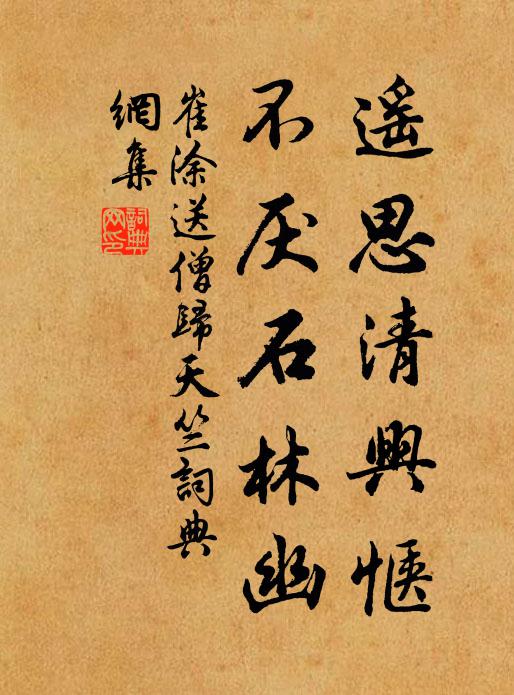 遥思清興惬
不厌石林幽
崔涂送僧歸天竺詞典
網集
詞典網印